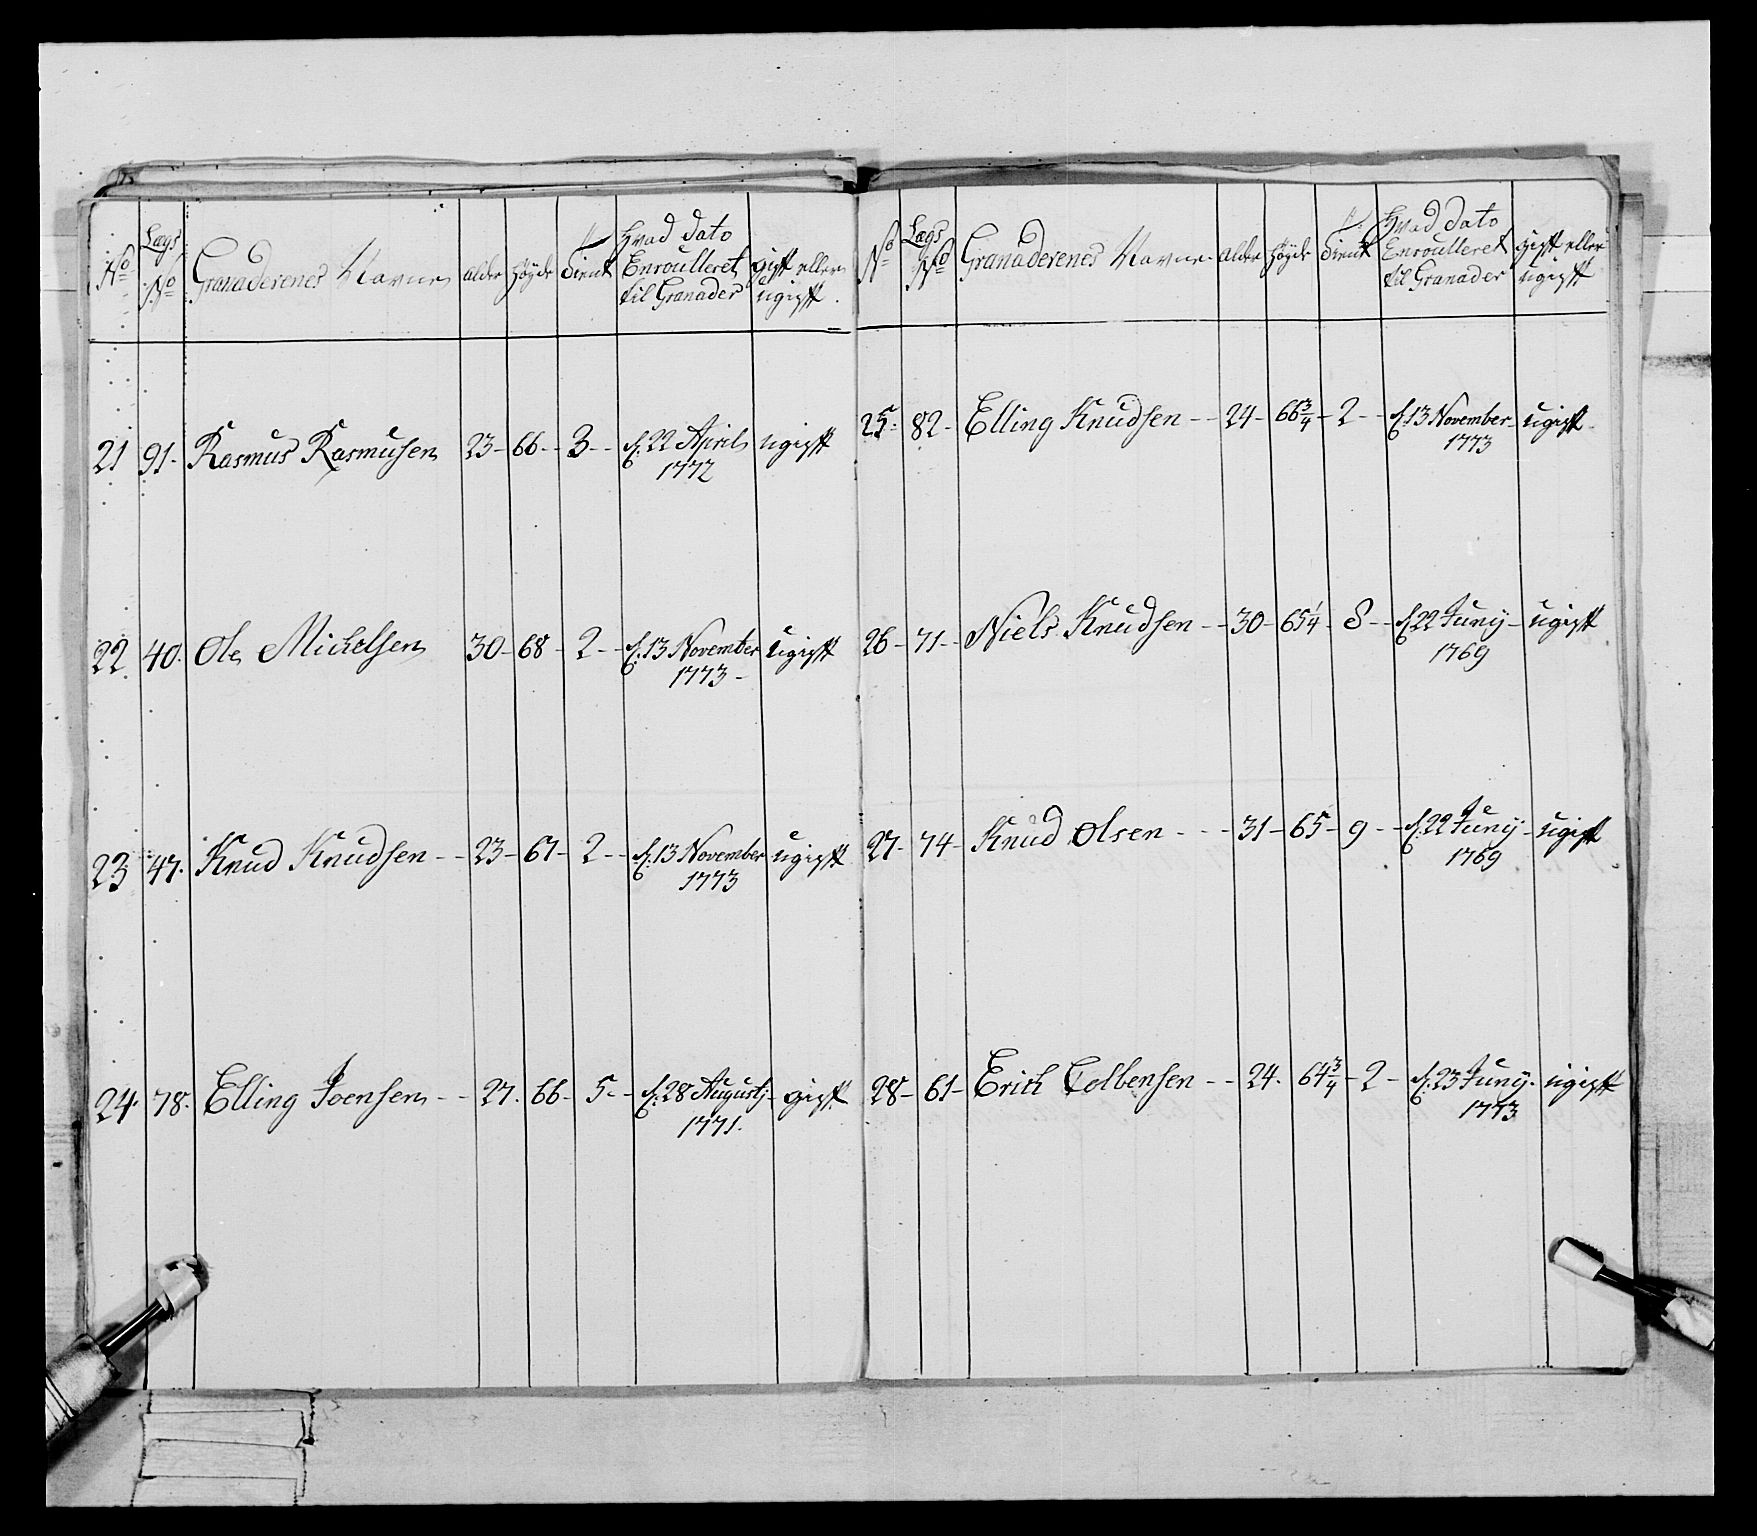 No Lægs No Granaderenes Navne alder høyde tient Hvad dato Enroulleret til Granader gift eller ugift
21 91 Rasmus Rasmusen 23 66 3 d. 22 April 1772 ugift
22 40 Ole Michelsen 30 68 2 d. 13 November 1773 ugift
23 47 Knud Knudsen 23 67 2 d. 13 November 1773 ugift
24 78 Elling Joensen 27 66 5 d. 28 Augustj 1771 gift
No Lægs No Granaderenes Navne alder høyde tient Hvad dato Enroulleret til Granader gift eller ugift
25 82 Elling Knudsen 24 66 3/4 2 d. 13 November 1773 ugift
26 71 Niels Knudsen 30 65 1/4 8 d. 22 Juny 1769 ugift
27 74 Knud Olsen 31 65 9 d. 22 Juny 1769 ugift
28 61 Erich Colbensen 24 64 3/4 2 d. 23 Juny 1773 ugift